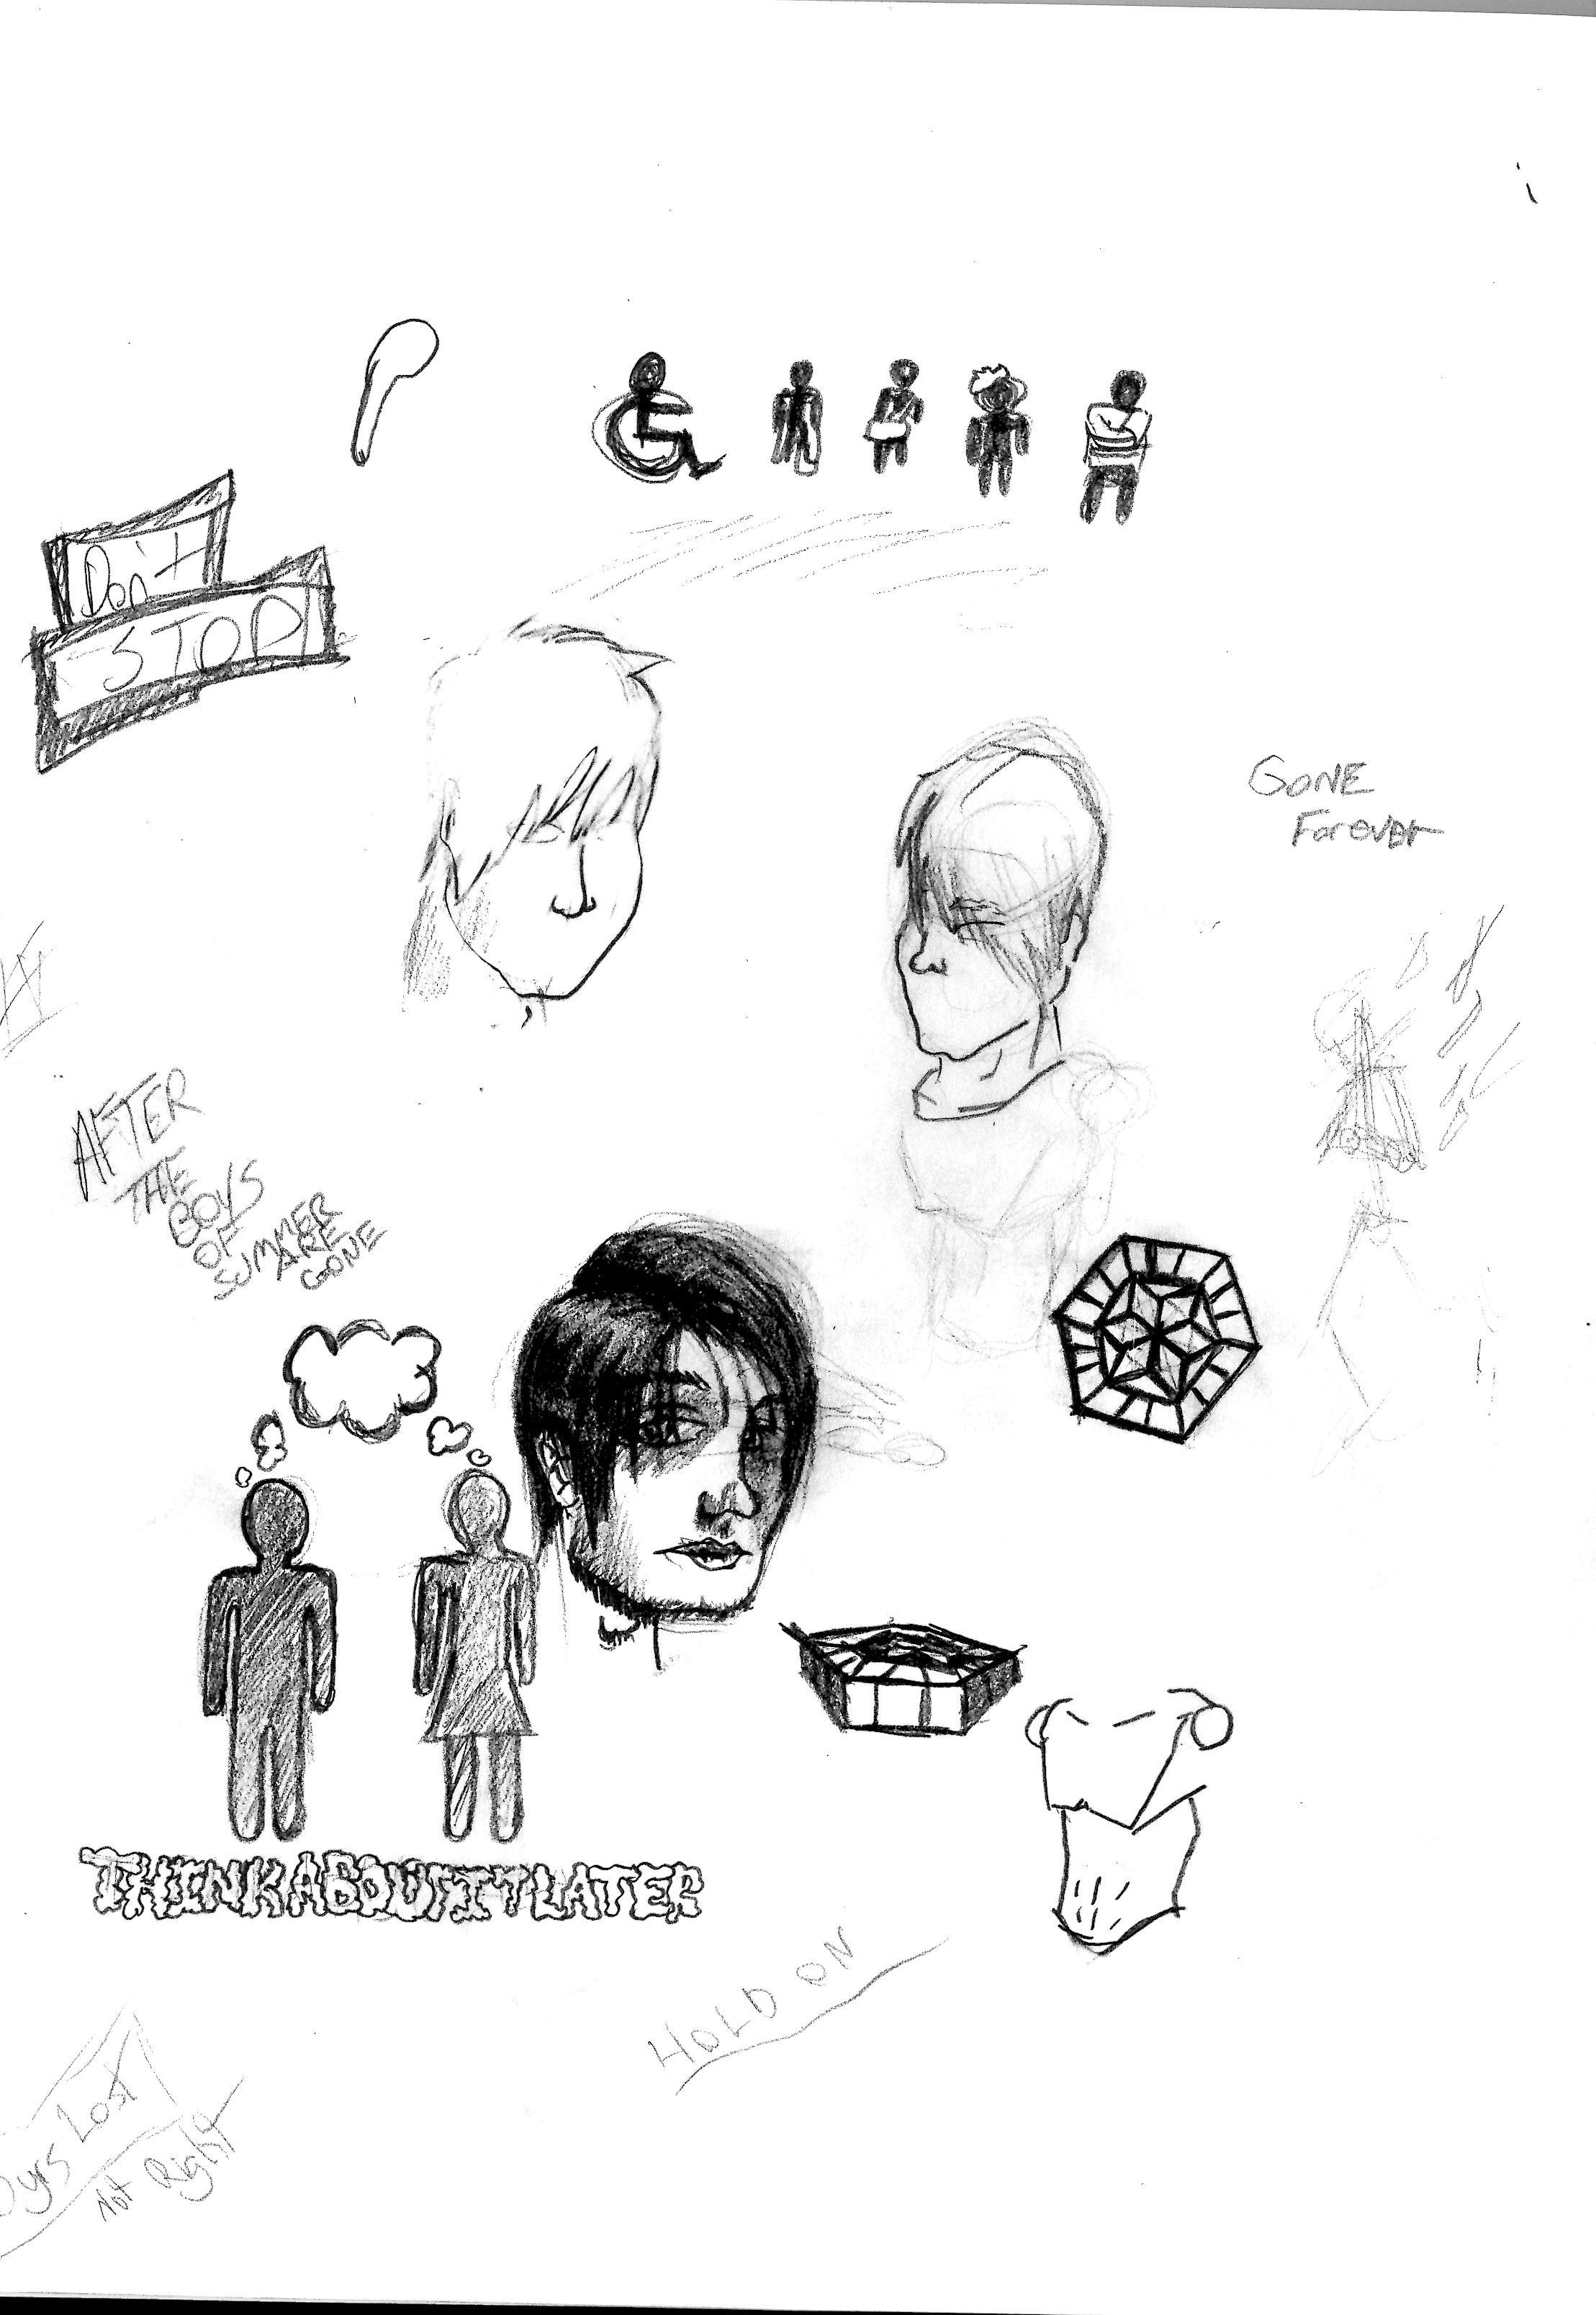 Don't
STOP!
GONE
Forever
AFTER
THE
BOYS
OF
SUMMER
ARE
GONE
THINKABOUTITLATER
HOLD ON
yrs Lost
Not Right